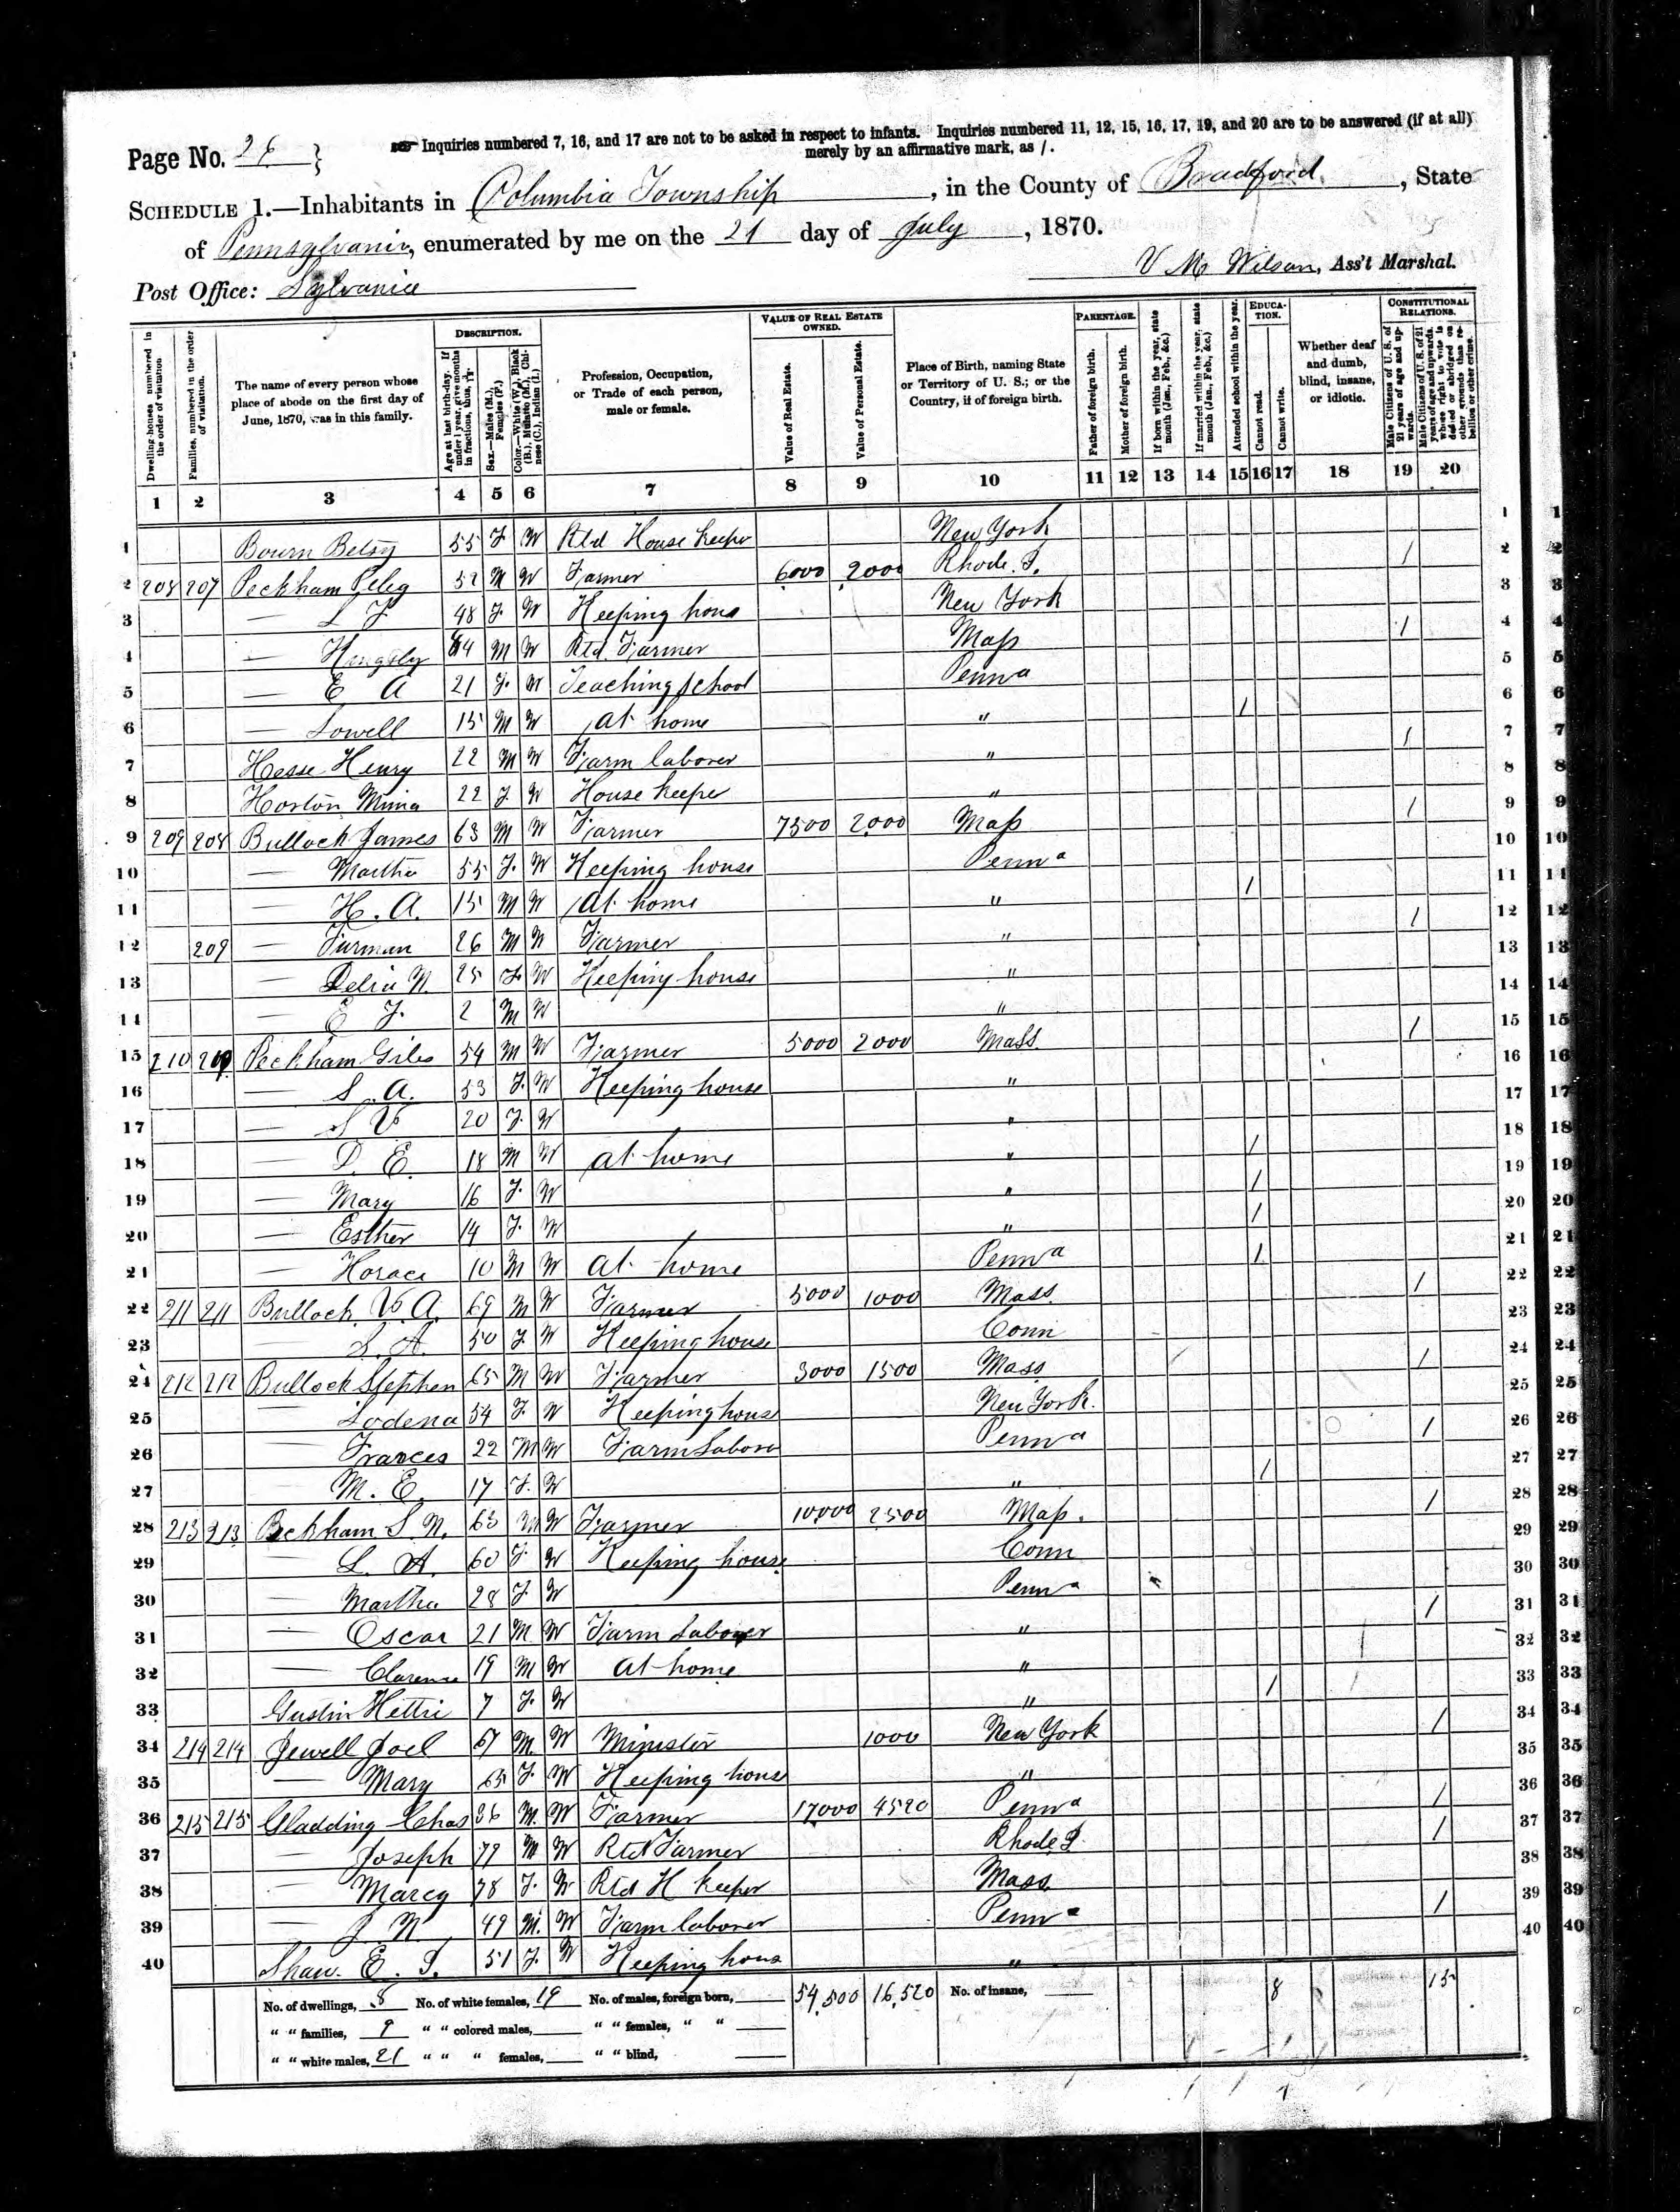 Page No. 26 } Inquiries numbered 7, 16, and 17 are not to be asked in respect to infants. Inquiries numbered 11, 12, 15, 16, 17, 19, and 20 are to be answered (if at all)
merely by an affirmative mark, as /.
SCHEDULE 1.—Inhabitants in Columbia Township, in the County of Bradford, State
of Pennsylvania, enumerated by me on the 21 day of July, 1870.
Post Office: Sylvania
V M Wilson, Ass't Marshal.
Dwelling-houses numbered in the order of visitation
Families, numbered in the order of visitation.
The name of every person whose place of abode on the first day of June, 1870, was in this family.
DESCRIPTION.
Age at last birth-day. If under 1 year, give months in fractions, thus,
Sex.—Males (M.), Females (F.)
Color.—White (W.), Black (B.), Mulatto (M.), Chinese (C.), Indian (I.)
Profession, Occupation, or Trade of each person, male or female.
VALUE OF REAL ESTATE OWNED.
Value of Real Estate.
Value of Personal Estate.
Place of Birth, naming State or Territory of U. S.; or the Country, if of foreign birth.
PARENTAGE.
Father of foreign birth.
Mother of foreign birth.
If born within the year, state month (Jan., Feb., &c.)
If married within the year, state month (Jan., Feb., &c.)
Attended school within the year.
EDUCATION.
Cannot read.
Cannot write.
Whether deaf and dumb, blind, insane, or idiotic.
CONSTITUTIONAL RELATIONS.
Male Citizens of U. S. of 21 years of age and upwards.
Male Citizens of U. S. of 21 years of age and upwards, whose right to vote is denied or abridged on other grounds than rebellion or other crime.
1 2 3 4 5 6 7 8 9 10 11 12 13 14 15 16 17 18 19 20
1 Bourn Betsy 55 F W Rtd House Keeper New York 1 1
2 208 207 Peckham Peleg 52 M W Farmer 6000 2000 Rhode I. / 2 2
3 — L F 48 F. W Keeping hous New York 3 3
4 — 84 M W Rtd. Farmer Mass / 4 4
5 — E A 21 F. W Teaching school Penna 5 5
6 — Lowell 15 M W At home " / 6 6
7 Hesse Henry 22 M W Farm laborer " / 7 7
8 Horton Mina 22 F. W House Keeper " 8 8
9 209 208 Bullock James 63 M W Farmer 7500 2000 Mass / 9 9
10 — Martha 55 F. W Keeping house Penna 10 10
11 — H. A. 15 M W At home " / 11 11
12 209 — Furman 26 M W Farmer " / 12 12
13 — Delia N. 25 F. W Keeping house " 13 13
14 — E F. 2 M W " 14 14
15 210 Peckham Giles 54 M W Farmer 5000 2000 Mass / 15 15
16 — S. A. 53 F. W Keeping house " 16 16
17 — S V 20 F. W " 17 17
18 — D. E. 18 M W at home " / 18 18
19 — Mary 16 F. W " / 19 19
20 — Esther 14 F. W " / 20 20
21 — Horace 10 M W At home Penna / 21 21
22 211 211 Bullock V. A. 69 M W Farmer 5000 1000 Mass. / 22 22
23 — S. A. 50 F W Keeping house Conn 23 23
24 212 212 Bullock Stephen 65 M W Farmer 3000 1500 Mass / 24 24
25 — Lodena 54 F. W Keeping house New York. 25 25
26 — Frances 22 M W Farm Labor Penna / 26 26
27 — M. E. 17 F. W " / 27 27
28 213 213 Peckham S. N. 63 M W Farmer 10,000 2500 Mass. / 28 28
29 — L. A. 60 F W Keeping house Conn 29 29
30 — Martha 28 F W Penna 30 30
31 — Oscar 21 M W Farm Laborer " / 31 31
32 — Clarence 19 M W At home " 32 32
33 Gustin Hettie 7 F. W " / 33 33
34 214 214 Jewell Joel 67 M. W Minister 1000 New York / 34 34
35 — Mary 65 F. W Keeping hous " 35 35
36 215 215 Gladding Chas 36 M. W Farmer 17000 4520 Penna / 36 36
37 — Joseph 79 M W Rtd Farmer Rhode I. / 37 37
38 — Marcy 78 F. W Rtd H Keeper Mass 38 38
39 — J. N. 49 M. W Farm laborer Penna / 39 39
40 Shaw. E. S. 51 F. W Keeping hous " 40 40
No. of dwellings, 8 No. of white females, 19 No. of males, foreign born, 54,500 16,520 No. of insane, 8 15
" " families, 9 " " colored males, " " females, " "
" " white males, 21 " " " females, " " blind,